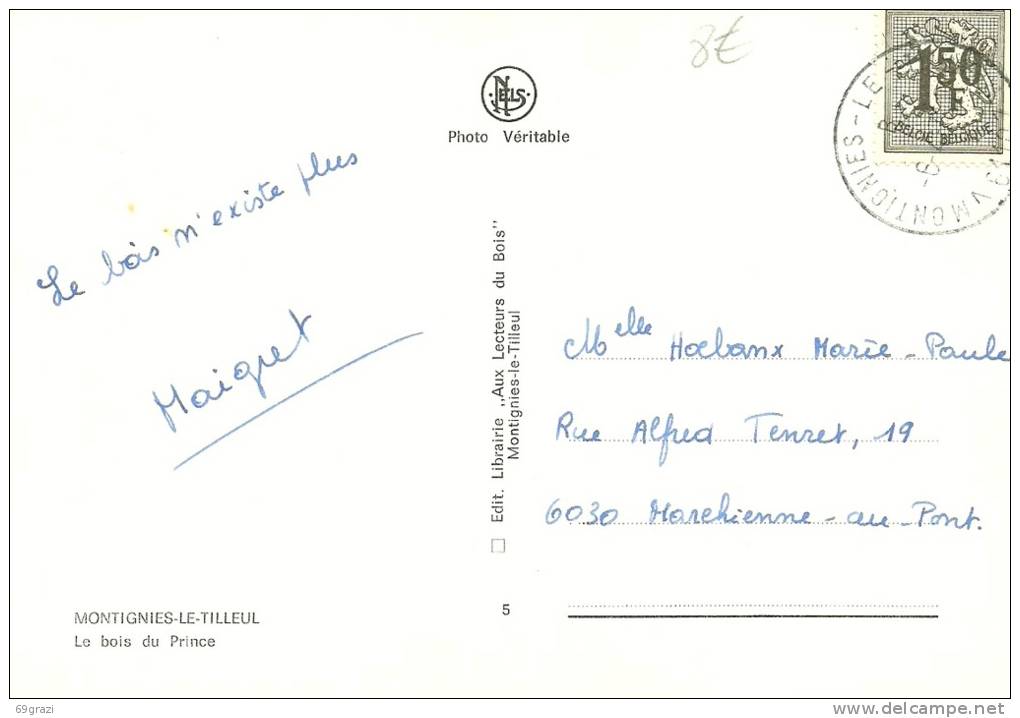 8€
NELS
Photo Véritable
1F50
BELGIE-BELGIQUE
MONTIGNIES-LE
Le bois n'existe plus
Maigret
Edit. Librairie ,,Aux Lecteurs du Bois"
Montignies-le-Tilleul
Melle Hoebanx Marie-Paule
Rue Alfred Tenret, 19
6030 Marchienne-au-Pont.
MONTIGNIES-LE-TILLEUL
Le bois du Prince
5
69grazi
www.delcampe.net